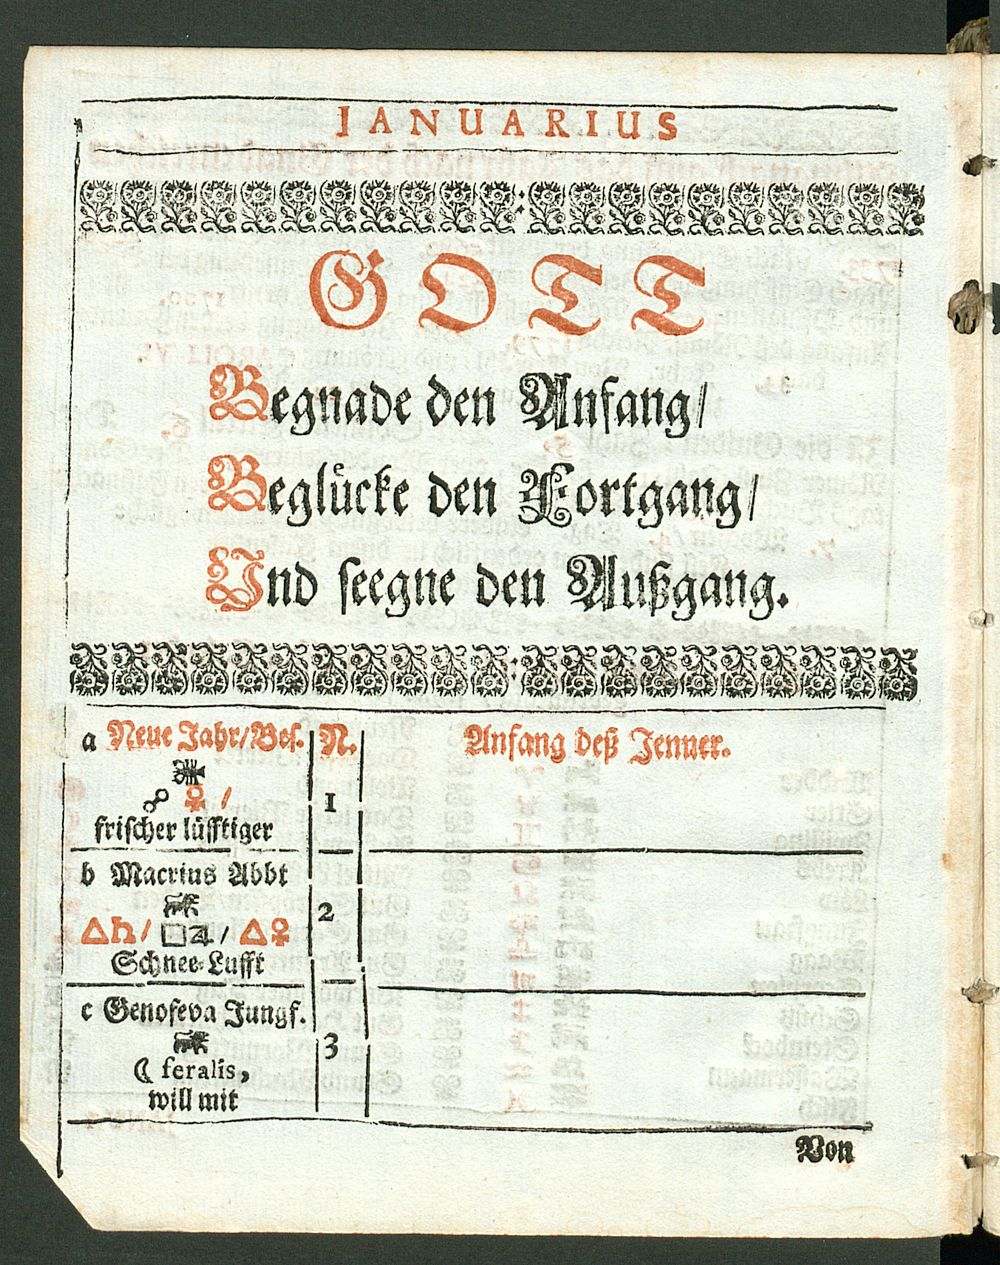 IANUARIUS
GOTT
Begnade den Anfang/
Beglücke den Fortgang/
Und seegne den Außgang.
a Neue Jahr/Bes. N. Anfang deß Jenner.
☍ ♀ /
1
frischer lüfftiger
b Macrius Abbt
2
△♄/ □♃/ △♀
Schnee-Lufft
c Genofeva Jungf.
3
☾ feralis,
will mit
Von